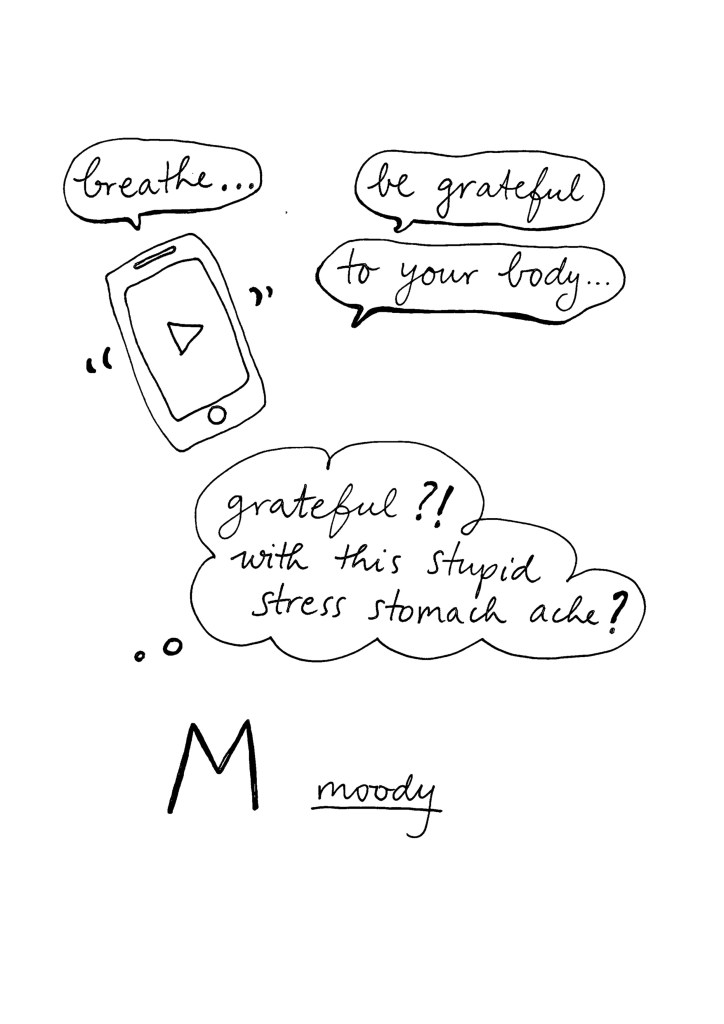 breathe...
be grateful
to your body...
grateful?!
with this stupid
stress stomach ache?
M moody